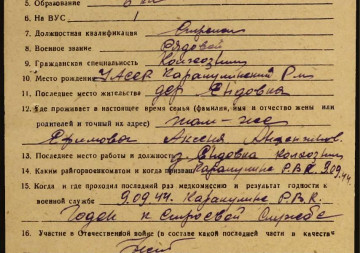 5. Образование
6. На ВУС 1
7. Должностная квалификация Стрелок
8. Военное звание Рядовой
9. Гражданская специальность Колхозник
10. Место рождения УАССР Каракулинский р-н
11. Последнее место жительства дер. Ендовка
12. Где проживает в настоящее время семья (фамилия, имя и отчество жены или
родителей и точный их адрес) там-же
Ефимова Аксенья
13. Последнее место работы и должность д. Ендовка колхозник
14. Каким райгорвоенкоматом и когда призван Каракулинс. Р.В.К. 9.09.44.
15. Когда и где проходил последний раз медкомиссию и результат годности к
военной службе 9.09.44. Каракулинс. Р.В.К.
Годен к строевой службе
16. Участие в Отечественной войне (в составе какой последней части в качестве